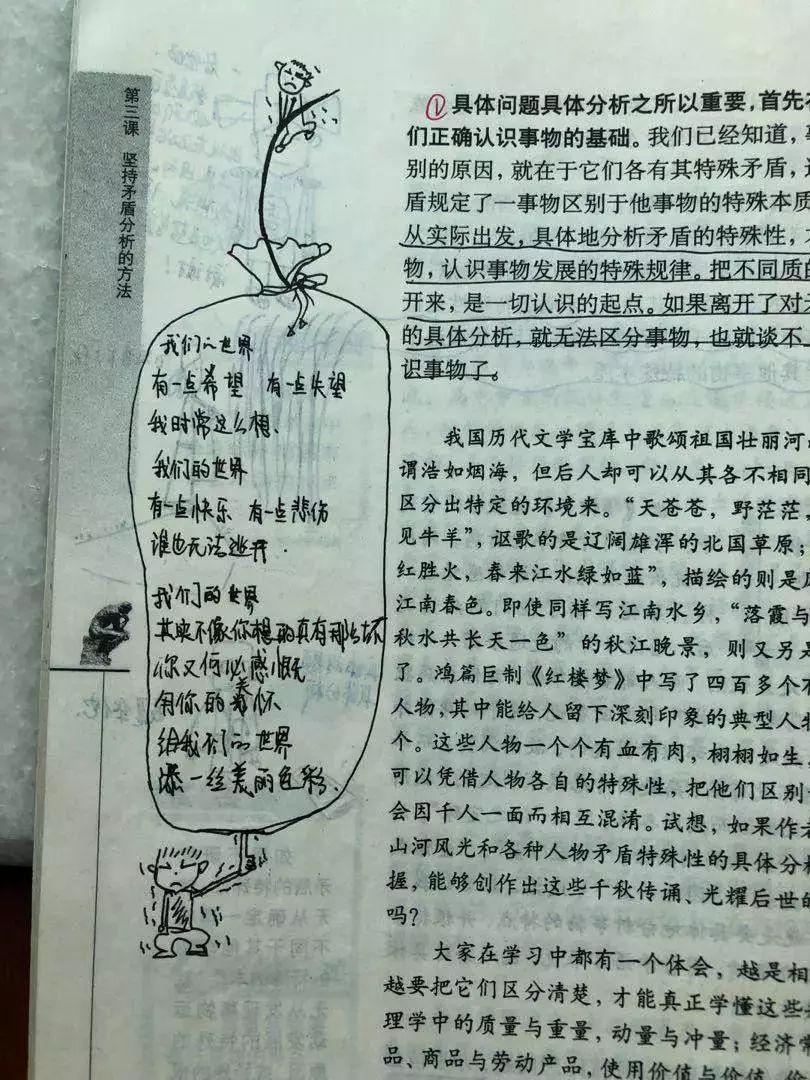 第三课 坚持矛盾分析的方法
我们的世界
有一点希望 有一点失望
我时常这么想、
我们的世界
有一点快乐 有一点悲伤
谁也无法逃开.
我们的世界
其实不像你想的真有那么坏
你又何必感慨
用你的 怀
给我们的世界
添一丝美丽色彩、
①具体问题具体分析之所以重要，首先
们正确认识事物的基础。我们已经知道，
别的原因，就在于它们各有其特殊矛盾，
盾规定了一事物区别于他事物的特殊本质
从实际出发，具体地分析矛盾的特殊性，
物，认识事物发展的特殊规律。把不同质的
开来，是一切认识的起点。如果离开了对
的具体分析，就无法区分事物，也就谈不上
识事物了。
我国历代文学宝库中歌颂祖国壮丽河
谓浩如烟海，但后人却可以从其各不相同
区分出特定的环境来。“天苍苍，野茫茫，
见牛羊”，讴歌的是辽阔雄浑的北国草原；
红胜火，春来江水绿如蓝”，描绘的则是
江南春色。即使同样写江南水乡，“落霞与
秋水共长天一色”的秋江晚景，则又另是
了。鸿篇巨制《红楼梦》中写了四百多个
人物，其中能给人留下深刻印象的典型人物
个。这些人物一个个有血有肉，栩栩如生，
可以凭借人物各自的特殊性，把他们区别
会因千人一面而相互混淆。试想，如果作者
山河风光和各种人物矛盾特殊性的具体分析
握，能够创作出这些千秋传诵、光耀后世的
吗？
大家在学习中都有一个体会，越是相
越要把它们区分清楚，才能真正学懂这些
理学中的质量与重量，动量与冲量；经济常
品、商品与劳动产品，使用价值与价值、价